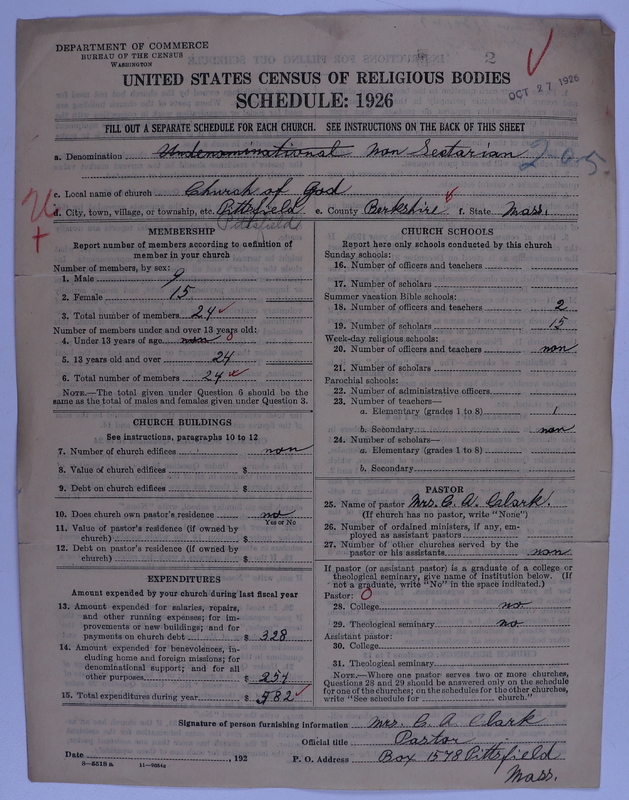 DEPARTMENT OF COMMERCE
BUREAU OF THE CENSUS
WASHINGTON
2
OCT 27 1926
UNITED STATES CENSUS OF RELIGIOUS BODIES
SCHEDULE: 1926
FILL OUT A SEPARATE SCHEDULE FOR EACH CHURCH. SEE INSTRUCTIONS ON THE BACK OF THIS SHEET
a. Denomination Undenominational Non Sectarian
205
c. Local name of church Church of God
d. City, town, village, or township, etc. Pittsfield e. County Berkshire f. State Mass.
Pittsfield
MEMBERSHIP
Report number of members according to definition of
member in your church
Number of members, by sex:
1. Male 9
2. Female 15
3. Total number of members 24
Number of members under and over 13 years old:
4. Under 13 years of age non 0
5. 13 years old and over 24
6. Total number of members 24
NOTE.—The total given under Question 6 should be the
same as the total of males and females given under Question 3.
CHURCH BUILDINGS
See instructions, paragraphs 10 to 12
7. Number of church edifices non
8. Value of church edifices $
9. Debt on church edifices $
10. Does church own pastor's residence no
Yes or No
11. Value of pastor's residence (if owned by
church) $
12. Debt on pastor's residence (if owned by
church) $
EXPENDITURES
Amount expended by your church during last fiscal year
13. Amount expended for salaries, repairs,
and other running expenses; for im-
provements or new buildings; and for
payments on church debt $ 328
14. Amount expended for benevolences, in-
cluding home and foreign missions; for
denominational support; and for all
other purposes $ 254
15. Total expenditures during year $ 582
CHURCH SCHOOLS
Report here only schools conducted by this church
Sunday schools:
16. Number of officers and teachers
17. Number of scholars
Summer vacation Bible schools:
18. Number of officers and teachers 2
19. Number of scholars 15
Week-day religious schools:
20. Number of officers and teachers non
21. Number of scholars
Parochial schools:
22. Number of administrative officers
23. Number of teachers—
a. Elementary (grades 1 to 8) 1
b. Secondary non
24. Number of scholars—
a. Elementary (grades 1 to 8)
b. Secondary
PASTOR
25. Name of pastor Mrs. C. A. Clark.
(If church has no pastor, write "None")
26. Number of ordained ministers, if any, em-
ployed as assistant pastors
27. Number of other churches served by the
pastor or his assistants non
If pastor (or assistant pastor) is a graduate of a college or
theological seminary, give name of institution below. (If
not a graduate, write "No" in the space indicated.)
Pastor: 0
28. College no
29. Theological seminary no
Assistant pastor:
30. College
31. Theological seminary
NOTE.—Where one pastor serves two or more churches,
Questions 28 and 29 should be answered only on the schedule
for one of the churches; on the schedules for the other churches,
write "See schedule for church."
Signature of person furnishing information Mrs. C. A. Clark
Official title Pastor
Date , 192 P. O. Address Box 1578 Pittsfield
8-5518 a
Mass.